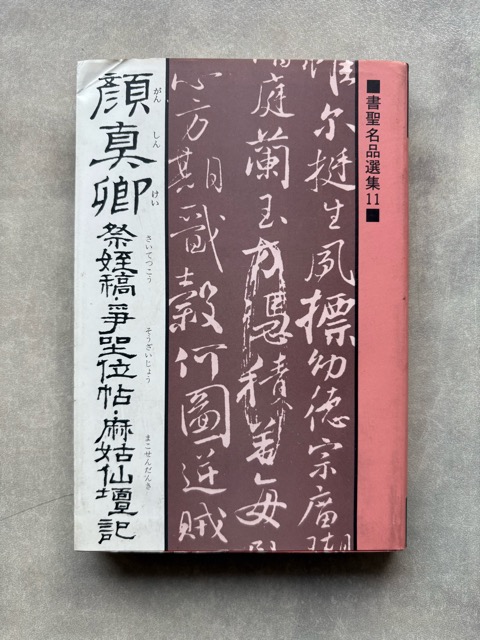 ■書聖名品選集11■
惟尓挺生夙標幼德宗廟瑚
階庭蘭玉方憑積善每
心方期戩穀何圖逆賊
顔真卿
がんしんけい
祭姪稿・爭坐位帖・麻姑仙壇記
さいてつこう
そうざいじょう
まこせんだんき